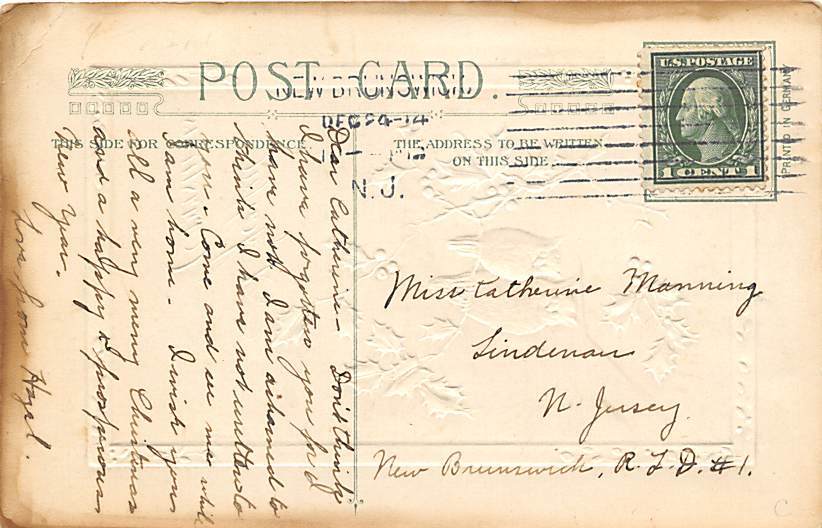 POST CARD.
NEW BRUNSWICK,
DEC 24-14
N.J.
THIS SIDE FOR CORRESPONDENCE
THE ADDRESS TO BE WRITTEN
ON THIS SIDE
U.S. POSTAGE
1 CENT 1
PRINTED IN GERMANY
Dear Catherine - Don't think
I have forgotten you for I
have not. I am ashamed to
think I have not written to
you. Come and see me while
I am home. I wish you
all a very merry Christmas
and a happy & prosperous
New Year.
Love from Hazel.
Miss Catherine Manning
Lindenau
N. Jersey.
New Brunswick, R.F.D. #1.
C